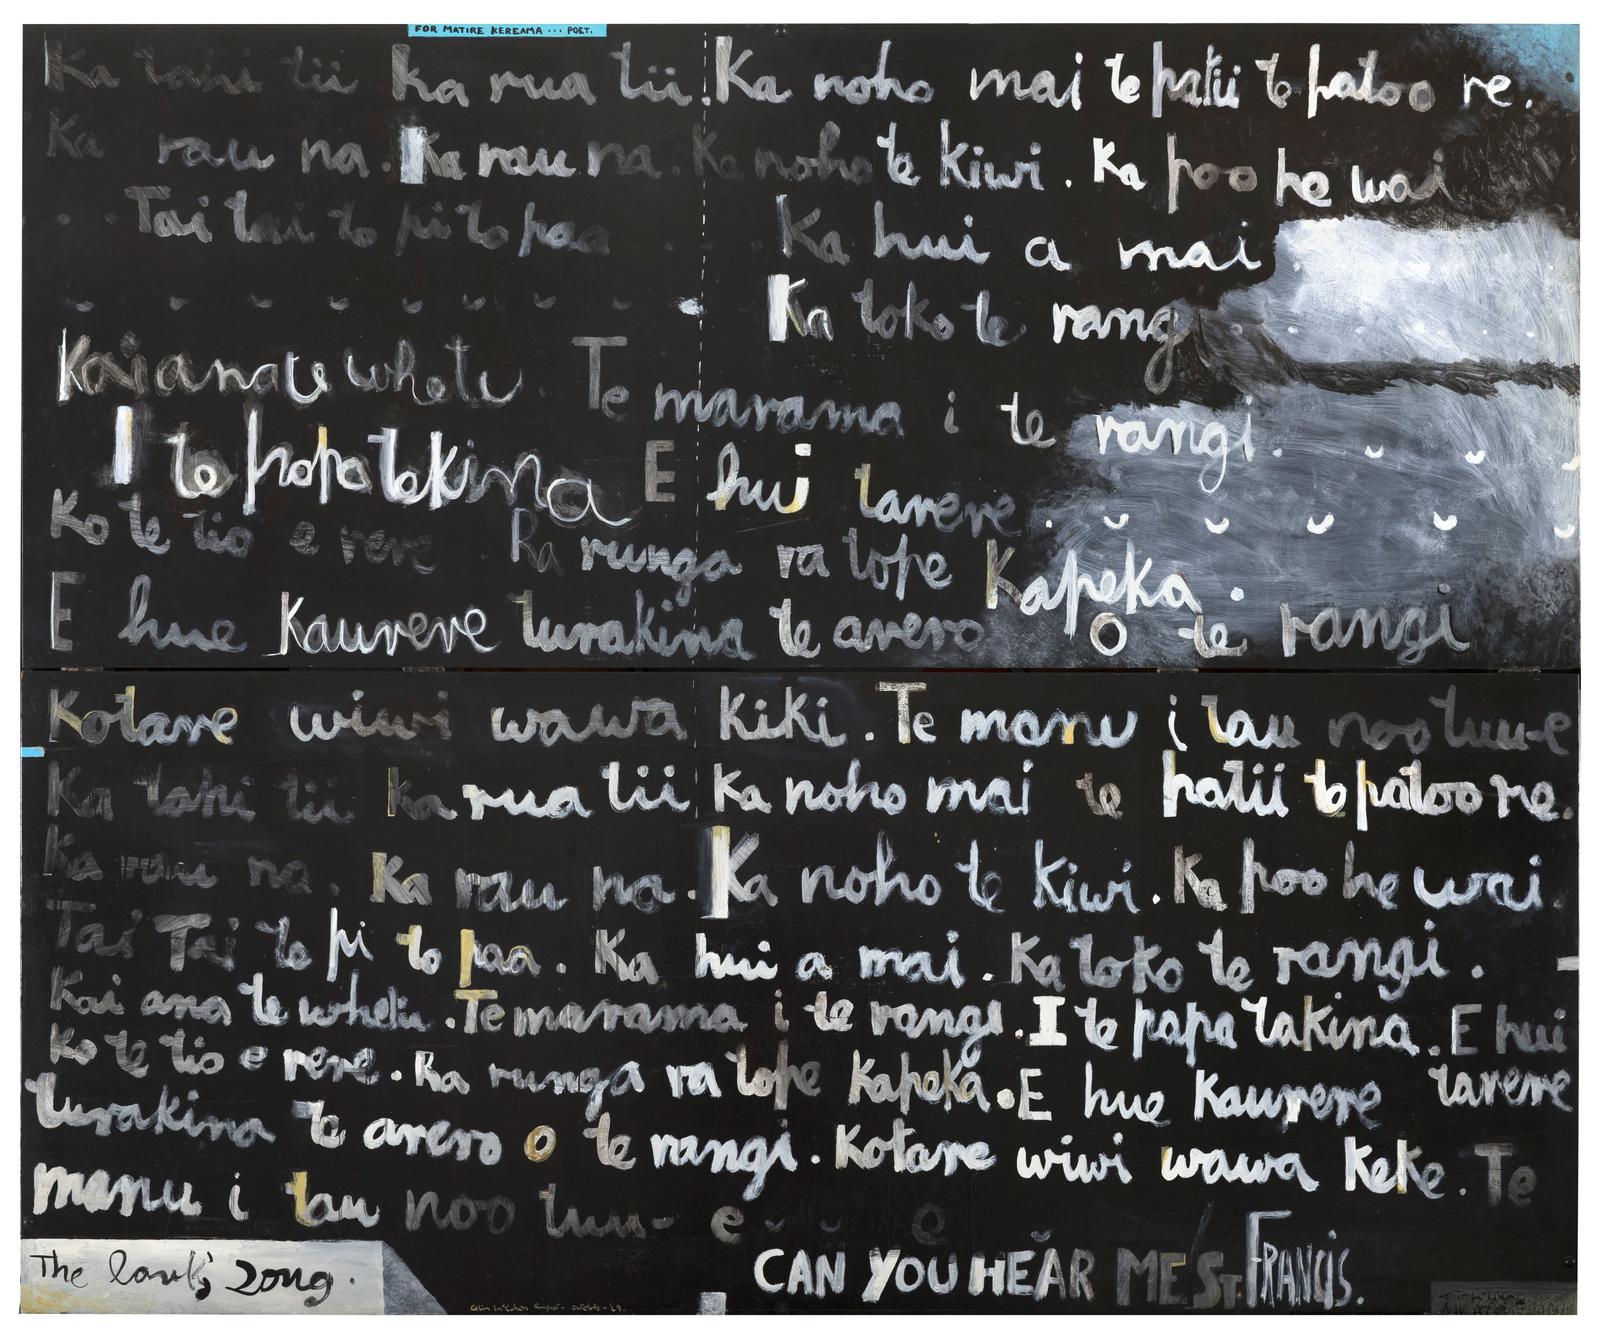 FOR MATIRE KEREAMA ... POET.
Ka tahi tii Ka rua tii. Ka noho mai te patii te patoo re.
Ka rau na. Ka rau na. Ka noho te kiwi. Ka poo he wai
Tai tai te pi te paa Ka hui a mai
Ka toko te rang
Kai ana te whetu. Te marama i te rangi.
I te papa tekina E hui tarere.
Ko te tio e rere Ra runga ra tope Kapeka.
E hue Kaurere turakina te arero O te rangi
Kotare wiwi wawa kiki. Te manu i tau noo tuu-e
Ka tahi tii Ka rua tii Ka noho mai te patii te patoo re.
Ka rau na. Ka rau na. Ka noho te kiwi. Ka poo he wai.
Tai Tai te pi te paa. Ka hui a mai. Ka toko te rangi.
Kai ana te whetu. Te marama i te rangi. I te papa takina. E hui
Ko te tio e rere. Ra runga ra tope Kapeka. E hue Kaurere tarere
turakina te arero o te rangi. Kotare wiwi wawa keke. Te
manu i tau noo tuu- e e
The lark's song.
CAN YOU HEAR ME ST. FRANCIS.
Colin McCahon August - October - 69.